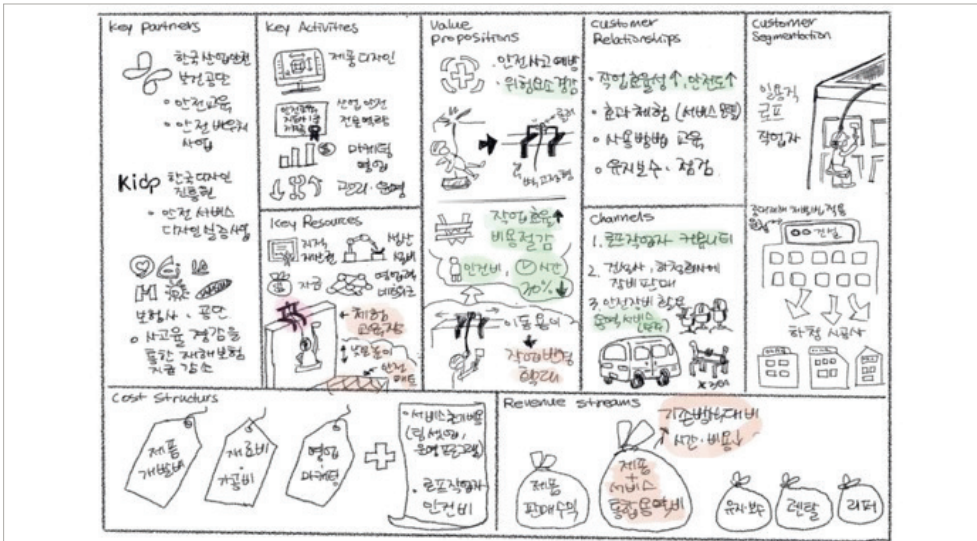 Key Partners
한국산업안전
보건공단
• 안전교육
• 안전 바우처
사업
Kidp 한국디자인
진흥원
• 안전 서비스
디자인 실증사업
보험사 · 공단
• 사고율 경감을
통한 재해보험
지급 감소
Key Activities
제품디자인
산업 안전
전문역량
마케팅
영업
관리·운영
Key Resources
지적
재산권
생산
설비
자금
영업력
네트워크
체험
교육장
안전
매트
Value
Propositions
• 안전사고 예방
• 위험요소 경감
작업효율↑
비용절감
인건비, 시간
20%↓
이동용이
작업반경
확대
Customer
Relationships
• 작업효율성↑, 안전도↑
• 효과체험 (서비스 운영)
• 사용방법 교육
• 유지보수 · 점검
Channels
1. 로프작업자 커뮤니티
2. 건설사, 하청회사에
장비판매
3. 안전장비 활용
용역서비스
Customer
Segmentation
일용직
로프
작업자
중대재해 처벌법 적용
○○건설
하청 시공사
Cost Structurs
제품
개발비
재료비
·가공비
영업
·마케팅
• 서비스 초기비용
(팀 셋업,
운영 프로그램)
• 로프작업자
인건비
Revenue streams
기존방식대비
시간·비용↓
제품
판매수익
제품
+
서비스
통합용역비
유지·보수
렌탈
리퍼